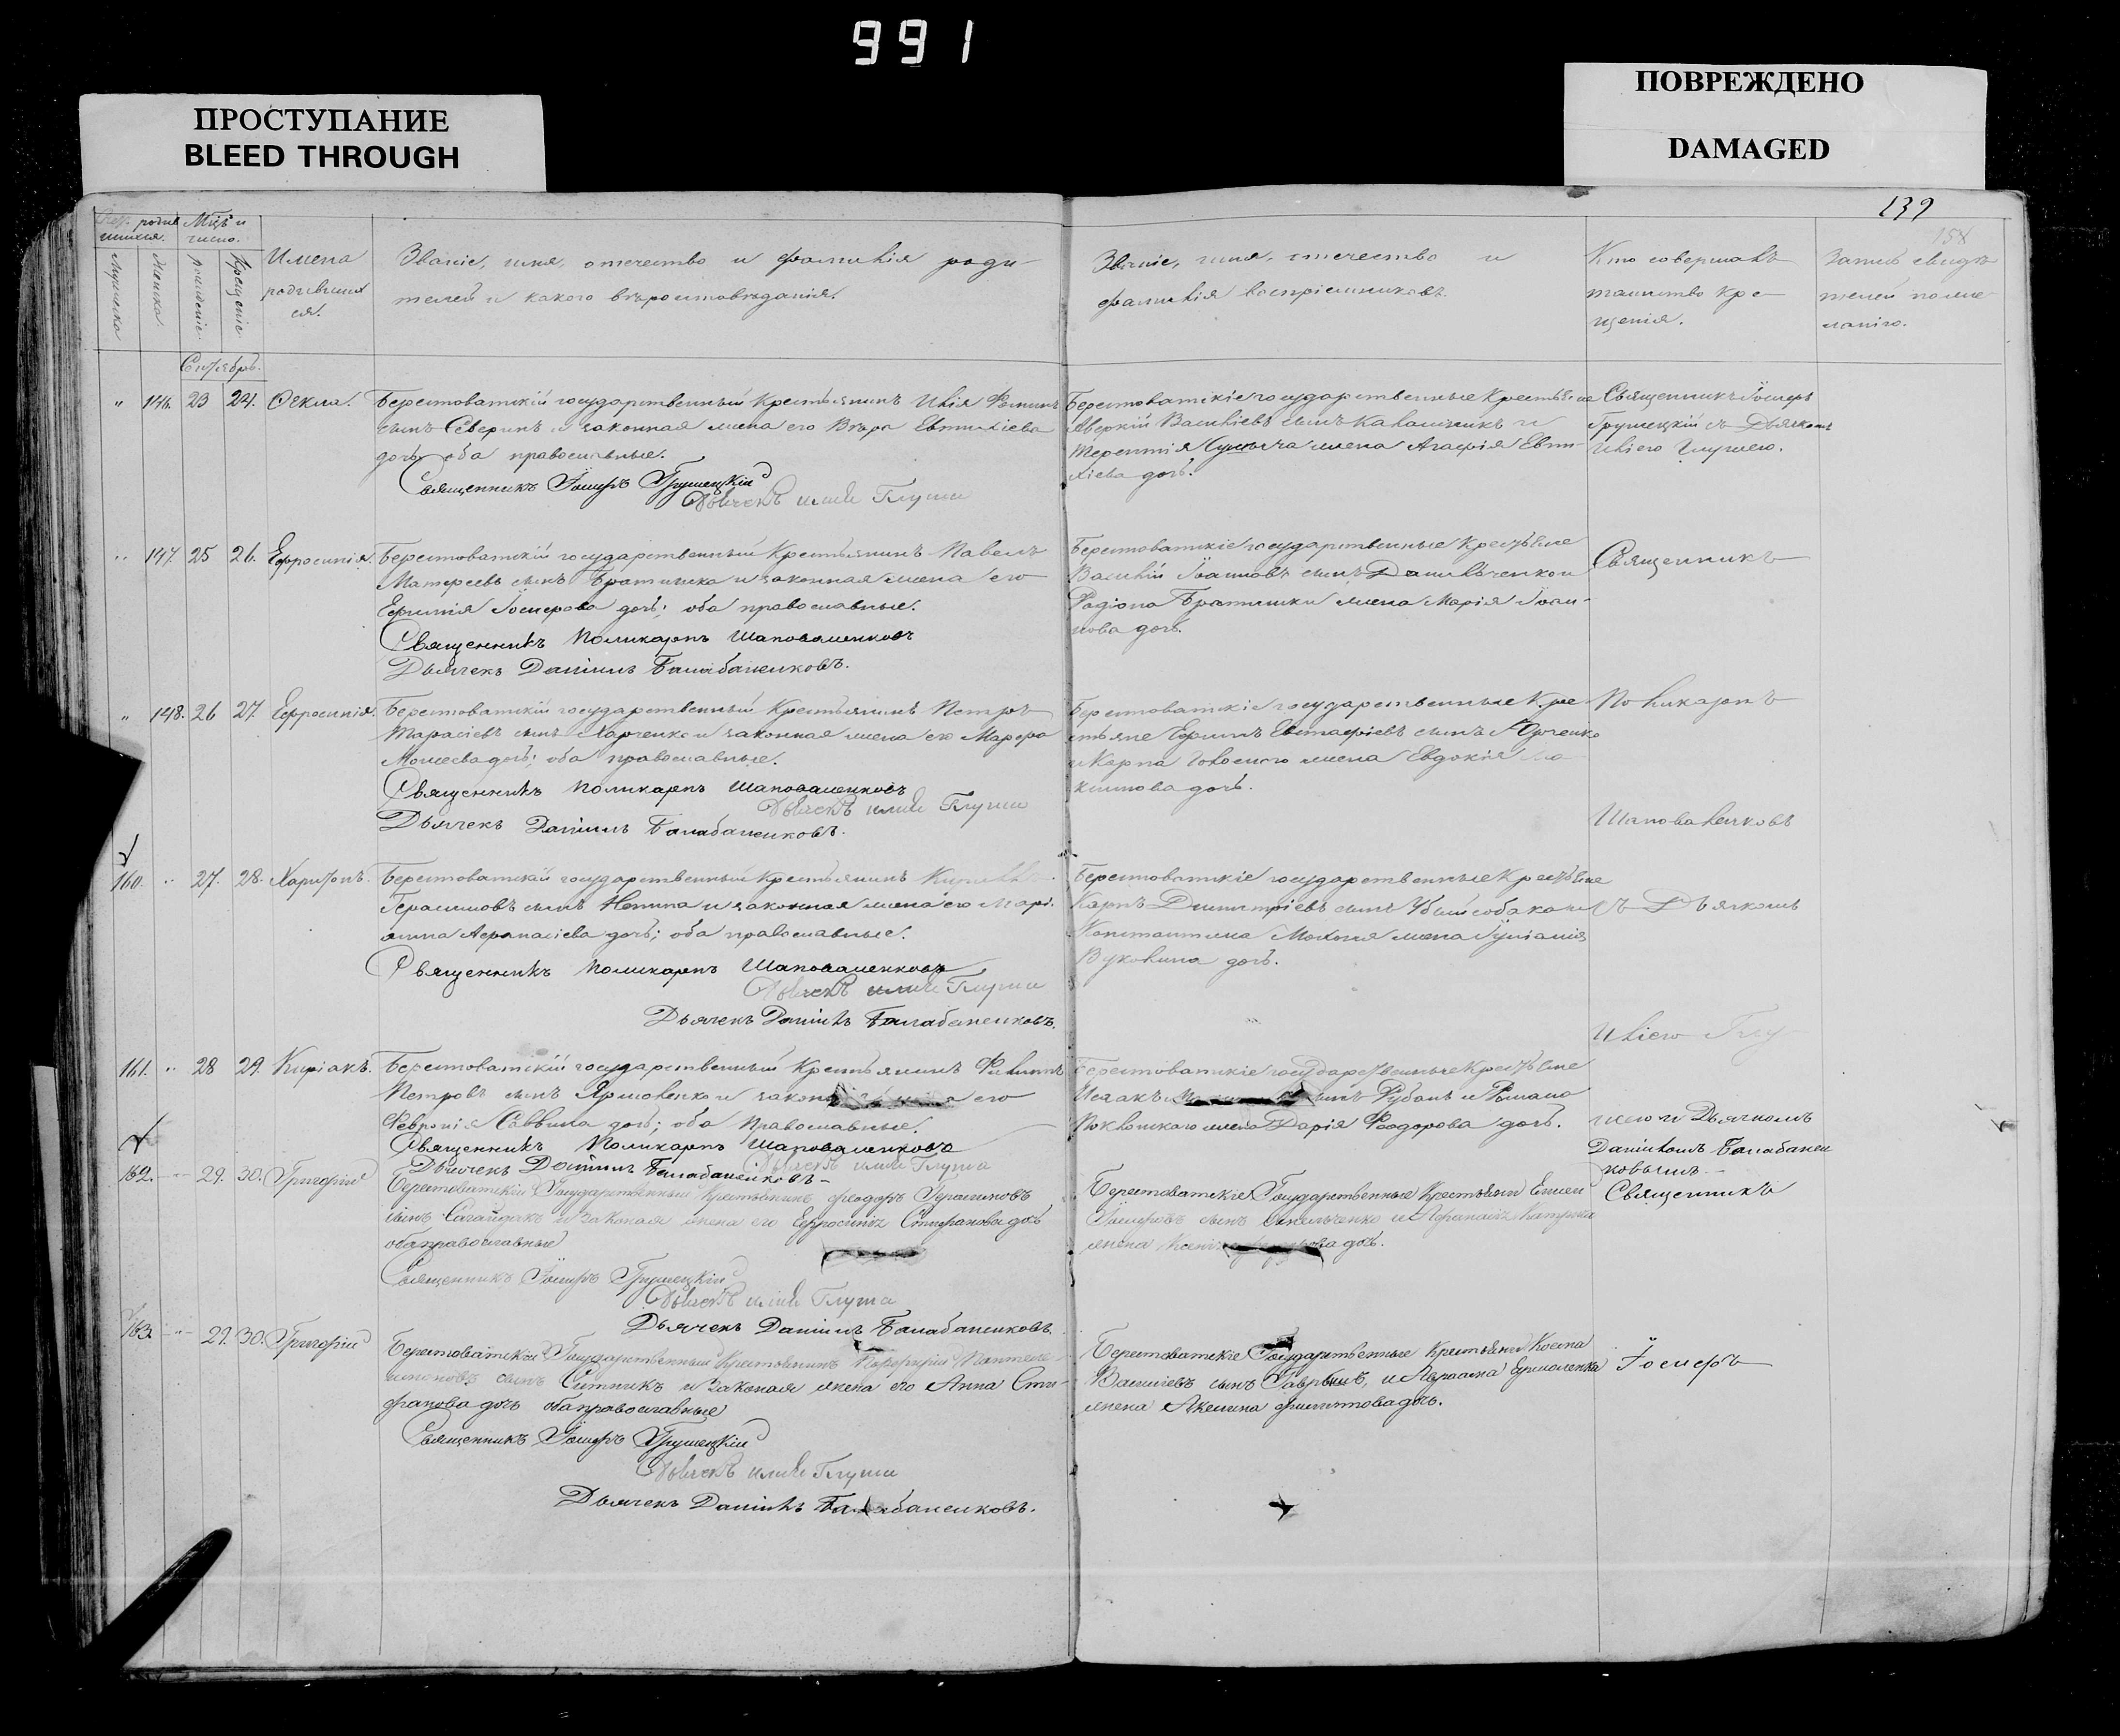 991
ПРОСТУПАНИЕ
BLEED THROUGH
ПОВРЕЖДЕНО
DAMAGED
139
158
Мѣсяцъ и число.
Мужеска
Женска
рожденіе
Крещеніе
Имена родившихся.
Званіе, имя, отчество и фамилія роди-
телей и какого вѣроисповѣданія.
Званіе, имя, отчество и
фамилія воспріемниковъ.
Кто совершалъ
таинство кре-
щенія.
Сентябрь.
" 146. 23 24. Ѳекла.
Берестоватскій государственный Крестьянинъ Илія Ѳоминъ
сынъ Северинъ и законная жена его Вѣра Евтихіева
дочь оба православные.
Священникъ Іосифъ Грушецкій
Дьячекъ Илія Глуши
Берестоватскіе государственные Крестьяне
Аверкій Васильевъ сынъ Калашникъ и
Терентія жена Агафія Евти-
хіева дочь.
Священникъ Іосифъ
Грушецкій съ Дьячкомъ
Иліею Глушею.
" 147. 25 26. Ефросинія.
Берестоватскій государственный Крестьянинъ Павелъ
Матфеевъ сынъ Братишка и законная жена его
Ефимія Іосифова дочь; оба православные.
Священникъ Поликарпъ Шаповаленковъ
Дьячекъ Даніилъ Балабаненковъ.
Берестоватскіе государственные Крестьяне
Василій Іоанновъ сынъ Данильченко и
Родіона Братишки жена Марія Іоан-
нова дочь.
Священникъ
" 148. 26 27. Ефросинія.
Берестоватскій государственный Крестьянинъ Петръ
Тарасіевъ сынъ Харченко и законная жена его Марфа
Моисеева дочь; оба православные.
Священникъ Поликарпъ Шаповаленковъ
Дьячекъ Илія Глуши
Дьячекъ Даніилъ Балабаненковъ.
Берестоватскіе государственные Кре-
стьяне Ефимъ Евстафіевъ сынъ
и Карпа жена Евдокія
дочь.
Поликарпъ
Шаповаленковъ
160. " 27. 28. Харитонъ.
Берестоватскій государственный Крестьянинъ
Герасимовъ сынъ Непипа и законная жена его Марі-
анна Аѳанасіева дочь; оба православные.
Священникъ Поликарпъ Шаповаленковъ
Дьячекъ Илія Глуши
Дьячекъ Даніилъ Балабаненковъ.
Берестоватскіе государственные Крестьяне
Карпъ Димитріевъ сынъ Убийсобака и
Константина жена Іуліанія
дочь.
съ Дьячкомъ
Иліею Глу-
161. " 28 29. Киріакъ.
Берестоватскій государственный Крестьянинъ Филиппъ
Петровъ сынъ Ярмоленко и законная жена его
Февронія Саввина дочь; оба православные.
Священникъ Поликарпъ Шаповаленковъ
Дьячекъ Илія Глуша
Дьячекъ Даніилъ Балабаненковъ
Берестоватскіе государственные Крестьяне
Исаакъ сынъ Рубанъ и Романа
Поклонскаго жена Дарія Ѳеодорова дочь.
шею и Дьячкомъ
Даніиломъ Балабанен
ковымъ.
162. " 29. 30. Григорій
Берестоватскій Государственный Крестьянинъ Ѳеодоръ Герасимовъ
сынъ Сагайдакъ и Законая жена его Ефросинія Стефанова дочь
оба православные
Священникъ Іосифъ Грушецкій
Дьячекъ Илія Глуши
Дьячекъ Даніилъ Балабаненковъ.
Берестоватскіе Государственные Крестьяне
Іосифовъ сынъ и
жена дочь.
Священникъ
163. " 29. 30. Григорій
Берестоватскій Государственный Крестьянинъ Порфирій Пантеле-
имоновъ сынъ Ситникъ и Законая жена его Анна Сте-
фанова дочь оба православные
Священникъ Іосифъ Грушецкій
Дьячекъ Илія Глуши
Дьячекъ Даніилъ Балабаненковъ.
Берестоватскіе Государственные Крестьяне Косма
Васильевъ сынъ и Ермоленка
жена Акелина Филиппова дочь.
Іосифъ